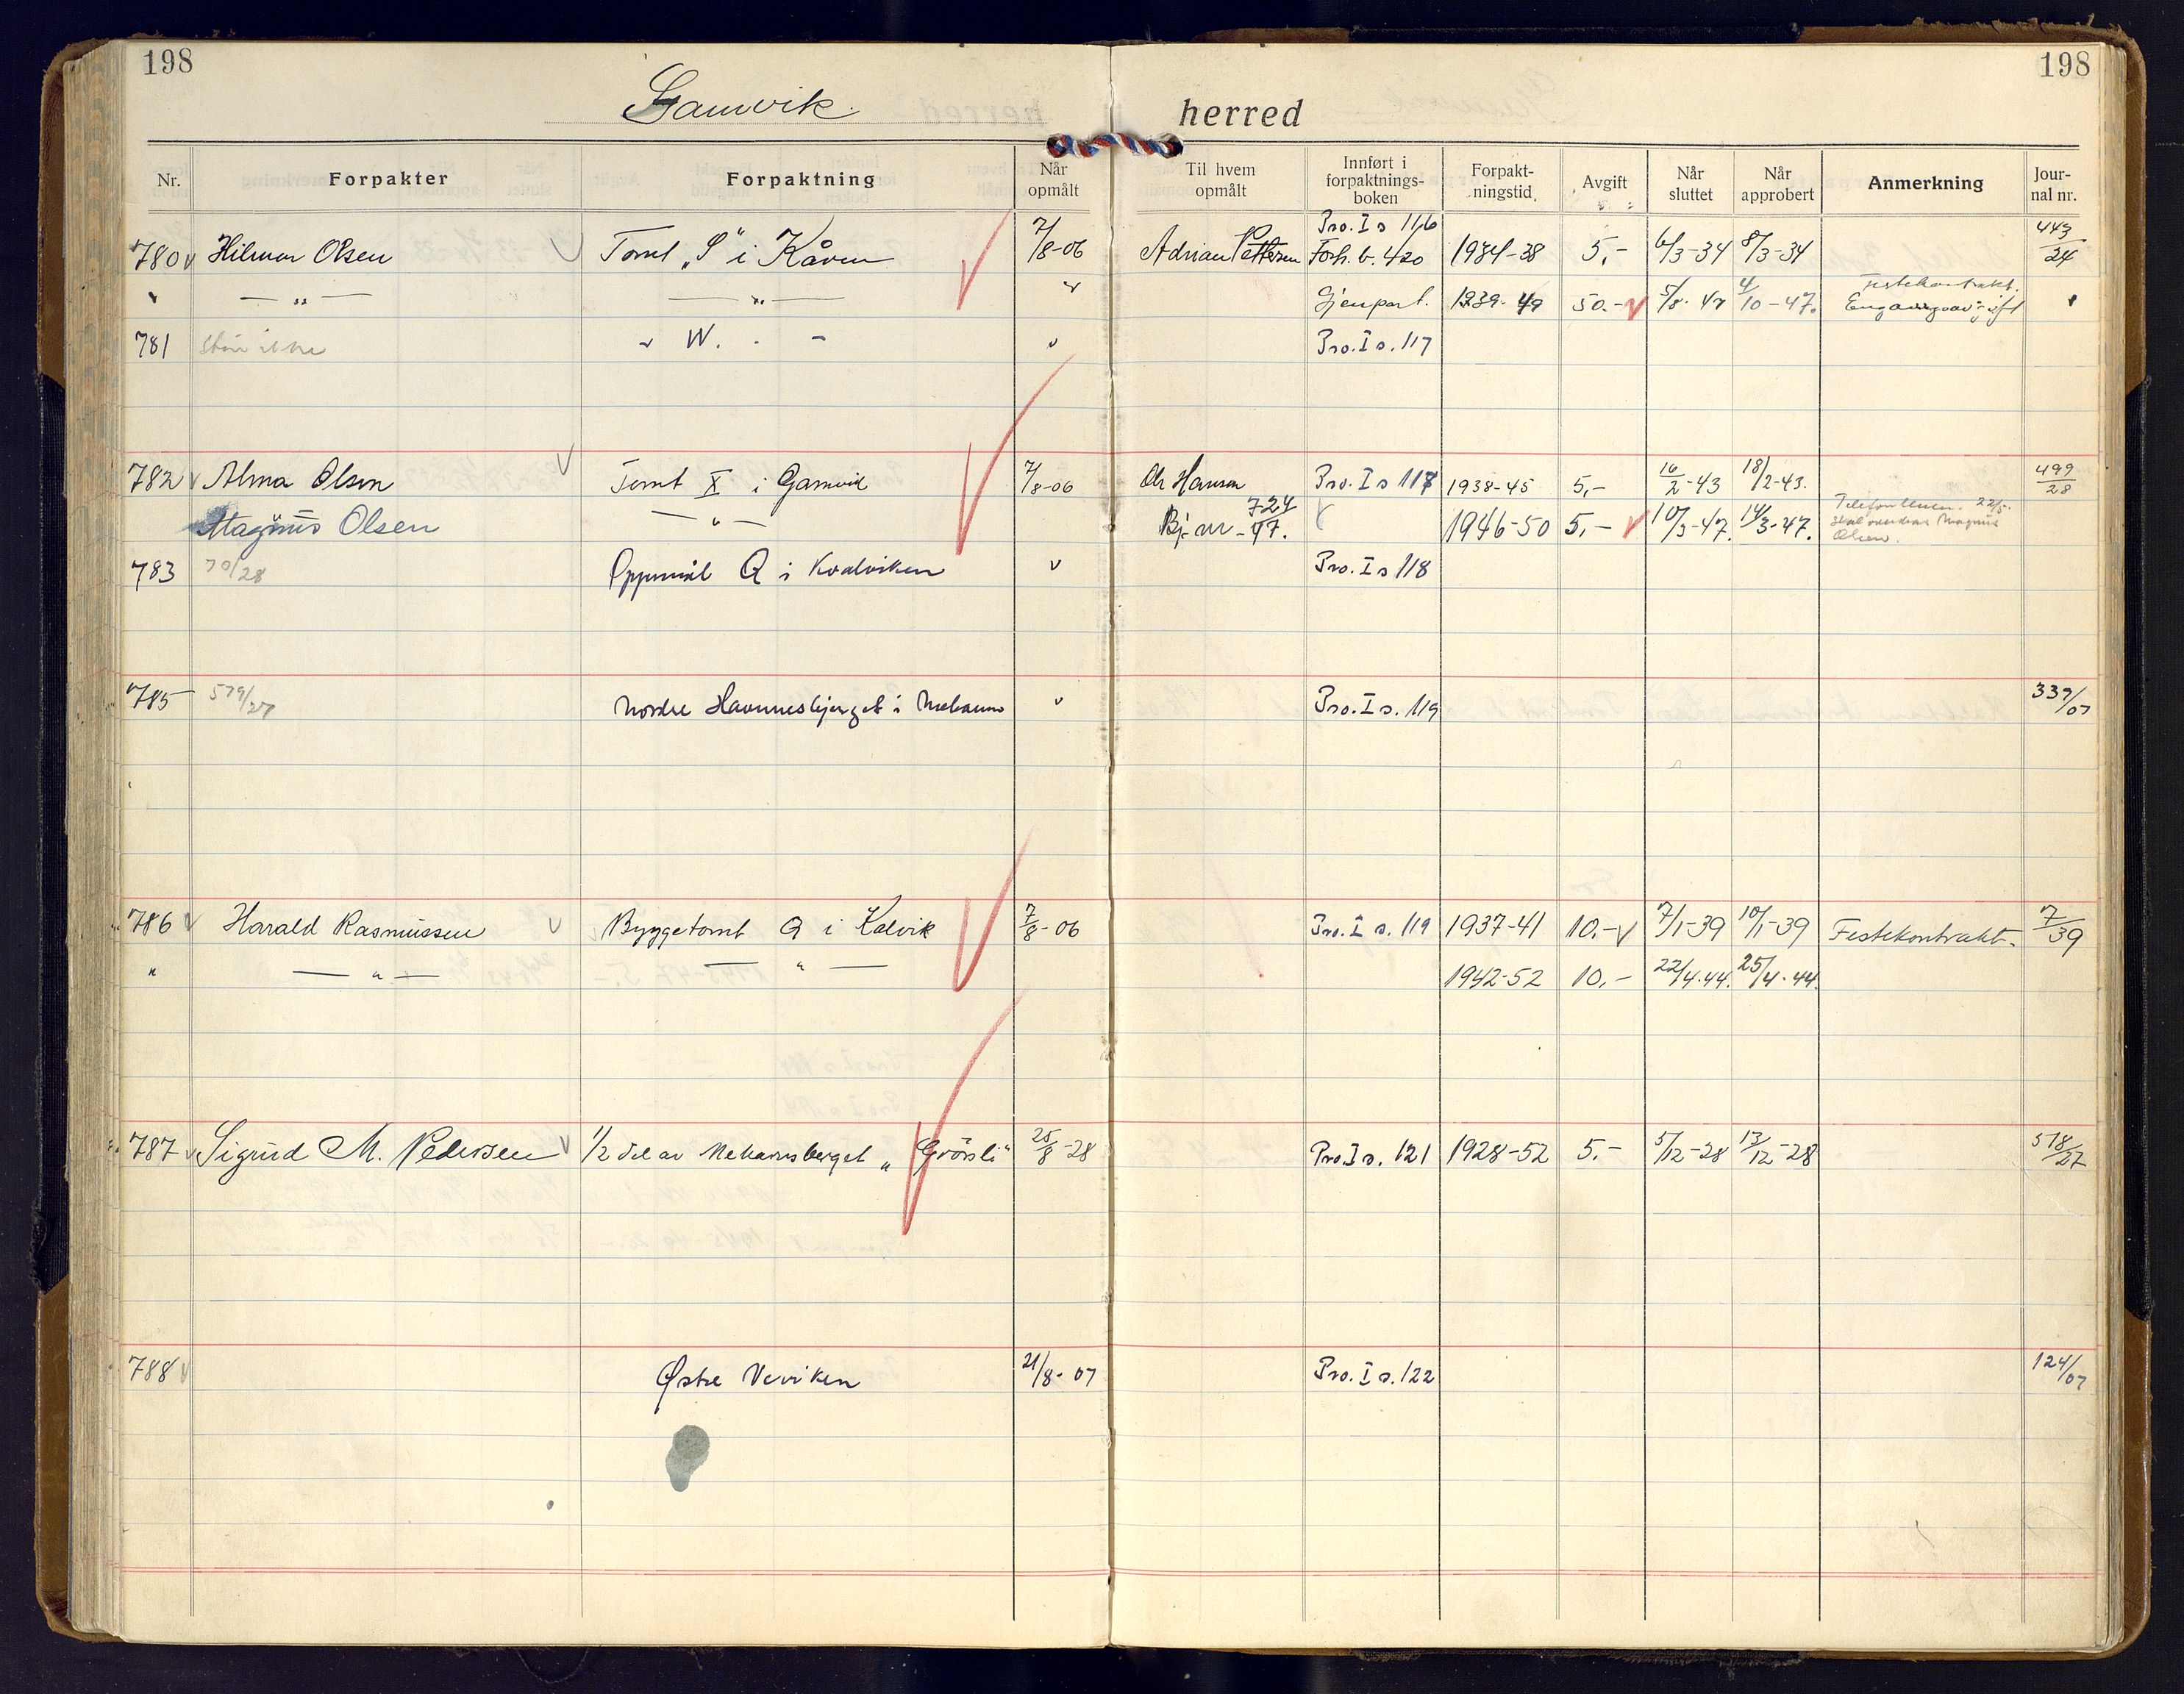 198 198
Gamvik herred
Nr. Forpakter Forpaktning Når opmålt Til hvem opmålt Innført i forpaktnings-boken Forpakt-ningstid Avgift Når sluttet Når approbert Anmerkning Jour-nal nr.
Pro. I s 116
780 Hilmar Olsen Tomt „S" i Kåven 7/8-06 Adrian Pettersen Forh. b. 420 1934-38 5,- 6/3-34 8/3-34 443/24
" — " — — " — " Gjenpart. 1939-49 50.- 5/8-47 4/10-47. Festekontrakt. Engangsavgift "
781 " W. - - " Pro. I s. 117
782 Alma Olsen Tomt X i Gamvik 7/8-06 Ole Hansen Pro. I s 117 1938-45 5,- 16/2-43 18/2-43. 499/28
Magnus Olsen — " — Bj. nr 724-47. 1946-50 5,- 10/3-47. 14/3-47. Magnus Olsen.
783 70/28 Oppmål Q i Kvalviken " Pro. I s 118
785 579/27 Nordre Havnnesbjerget i Mehavn " Pro. I s. 119 339/07
786 Harald Rasmussen Byggetomt Q i Kalvik 7/8-06 Pro. I s. 119 1937-41 10.- 7/1-39 10/1-39 Festekontrakt. 7/39
" — " — — " — 1942-52 10,- 22/4-44. 25/4-44.
787 Sigurd M. Pedersen 1/2 del av Mehavnsberget „ 25/8-28 Pro. I s. 121 1928-52 5.- 5/12-28 13/12-28 518/27
788 Østre Veviken 21/8-07 Pro. I s. 122 124/07